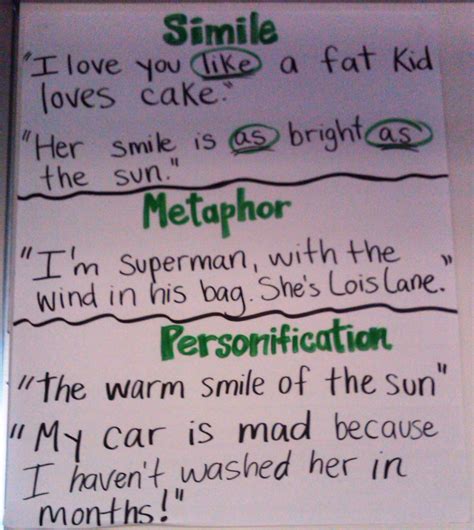 Simile
"I love you like a fat kid
loves cake."
"Her smile is as bright as
the sun."
Metaphor
"I'm Superman, with the
wind in his bag. She's Lois Lane."
Personification
"The warm smile of the sun"
"My car is mad because
I haven't washed her in
months!"